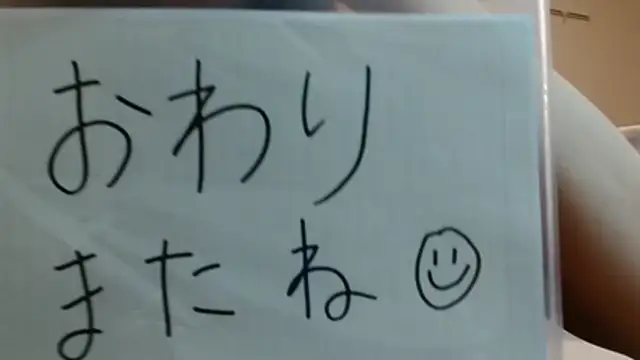 おわり
またね